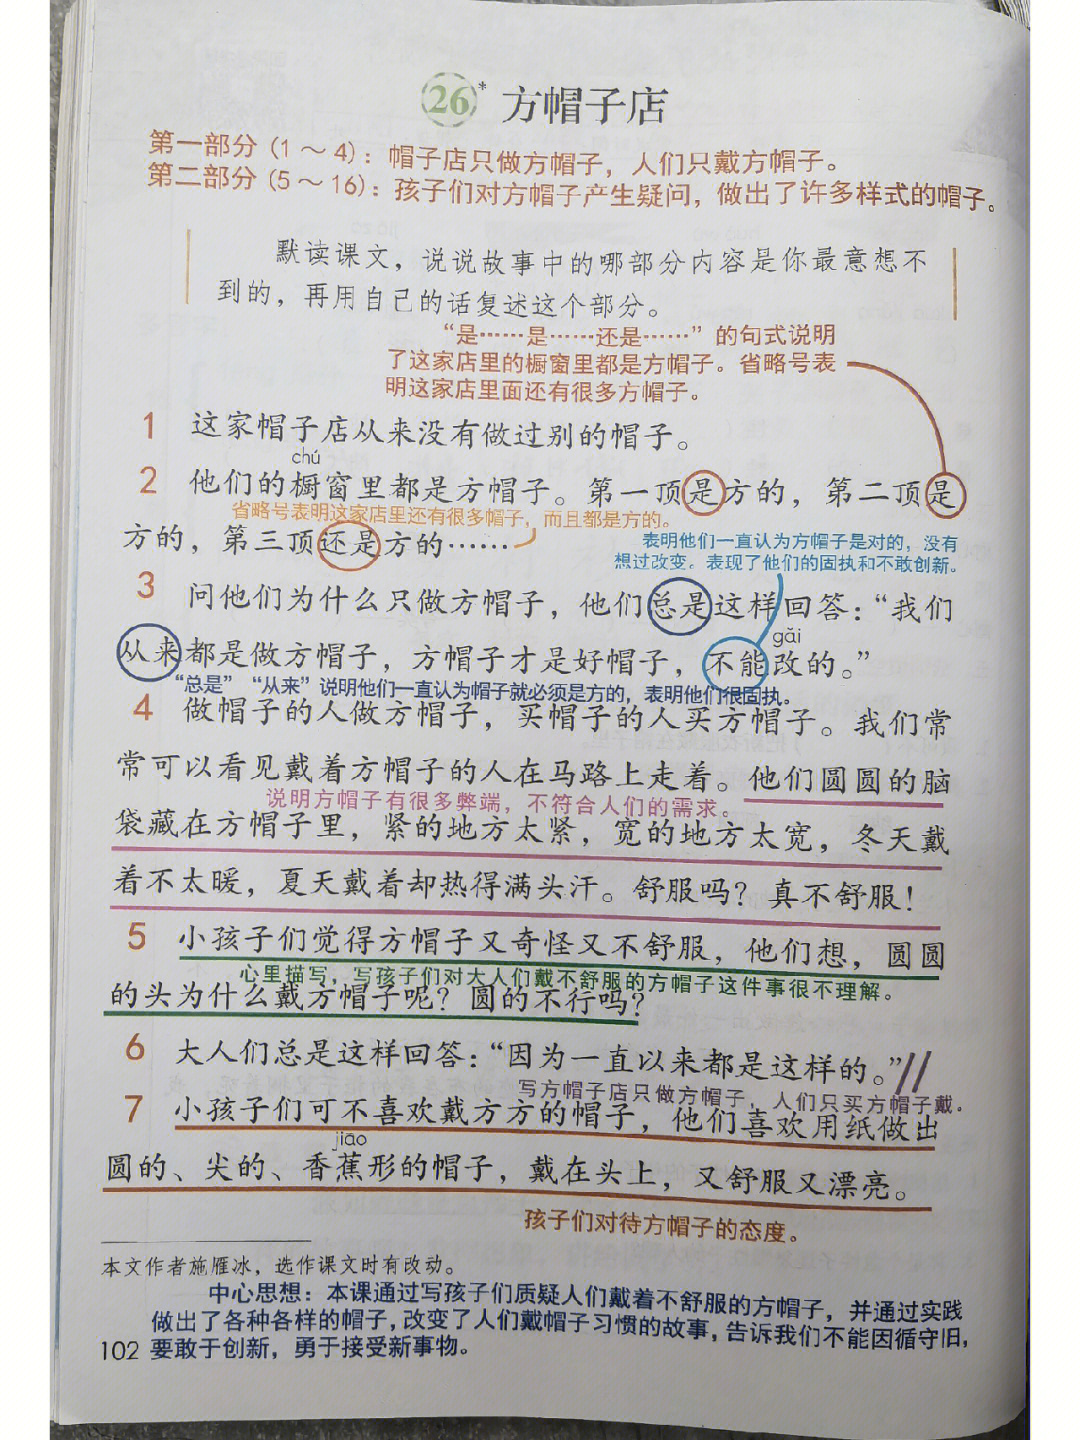 26* 方帽子店
第一部分（1～4）：帽子店只做方帽子，人们只戴方帽子。
第二部分（5～16）：孩子们对方帽子产生疑问，做出了许多样式的帽子。
默读课文，说说故事中的哪部分内容是你最意想不
到的，再用自己的话复述这个部分。
“是……是……还是……”的句式说明
了这家店里的橱窗里都是方帽子。省略号表
明这家店里面还有很多方帽子。
1 这家帽子店从来没有做过别的帽子。
chú
2 他们的橱窗里都是方帽子。第一顶是方的，第二顶是
省略号表明这家店里还有很多帽子，而且都是方的。
方的，第三顶还是方的……
表明他们一直认为方帽子是对的，没有
想过改变。表现了他们的固执和不敢创新。
3 问他们为什么只做方帽子，他们总是这样回答：“我们
gǎi
从来都是做方帽子，方帽子才是好帽子，不能改的。”
“总是”“从来”说明他们一直认为帽子就必须是方的，表明他们很固执。
4 做帽子的人做方帽子，买帽子的人买方帽子。我们常
常可以看见戴着方帽子的人在马路上走着。他们圆圆的脑
说明方帽子有很多弊端，不符合人们的需求。
袋藏在方帽子里，紧的地方太紧，宽的地方太宽，冬天戴
着不太暖，夏天戴着却热得满头汗。舒服吗？真不舒服！
5 小孩子们觉得方帽子又奇怪又不舒服，他们想，圆圆
心里描写，写孩子们对大人们戴不舒服的方帽子这件事很不理解。
的头为什么戴方帽子呢？圆的不行吗？
6 大人们总是这样回答：“因为一直以来都是这样的。”//
写方帽子店只做方帽子，人们只买方帽子戴。
7 小孩子们可不喜欢戴方方的帽子，他们喜欢用纸做出
jiāo
圆的、尖的、香蕉形的帽子，戴在头上，又舒服又漂亮。
孩子们对待方帽子的态度。
本文作者施雁冰，选作课文时有改动。
中心思想：本课通过写孩子们质疑人们戴着不舒服的方帽子，并通过实践
做出了各种各样的帽子，改变了人们戴帽子习惯的故事，告诉我们不能因循守旧，
102 要敢于创新，勇于接受新事物。